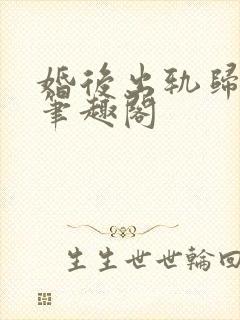 婚後出軌歸
筆趣閣
生生世世輪回